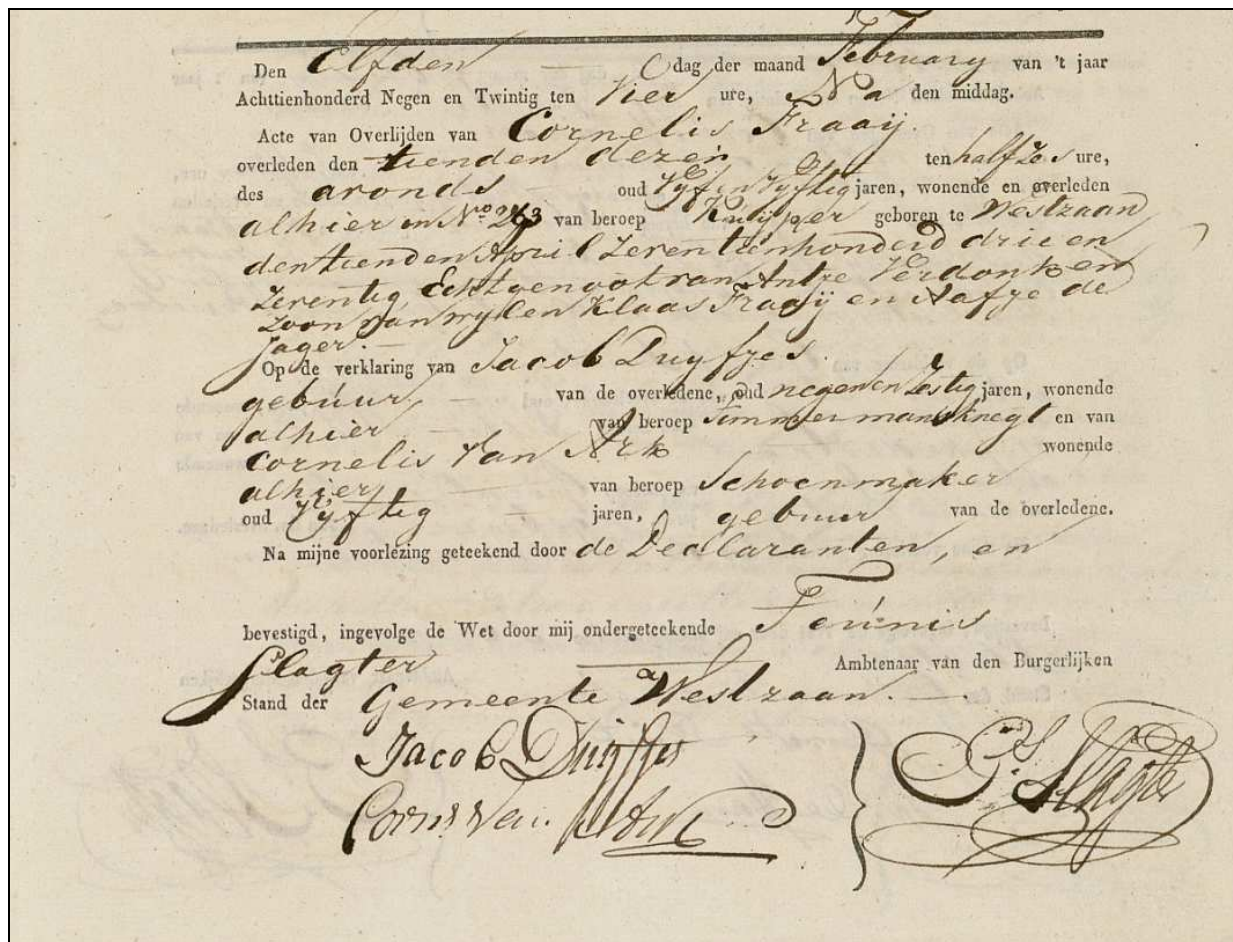 Den Elfden dag der maand February van 't jaar
Achttienhonderd Negen en Twintig ten Vier ure, Na den middag.
Acte van Overlijden van Cornelis Fraaij.
overleden den tienden dezer ten half Zes ure,
des avonds oud Vyf en Vyftig jaren, wonende en overleden
alhier in No 263 van beroep Kuijper geboren te Westzaan
den tienden April Zeventienhonderd drie en
Zeventig, Echtgenoot van Antje Verdonk en
Zoon van wylen Klaas Fraaij en Aafje de
Jager.
Op de verklaring van Jacob Duyfjes.
gebuur van de overledene, oud negen en Zestig jaren, wonende
alhier van beroep Timmermansknegt en van
Cornelis Van Ark wonende
alhier van beroep Schoenmaker
oud Vyftig jaren, gebuur van de overledene.
Na mijne voorlezing geteekend door de Declaranten, en
bevestigd, ingevolge de Wet door mij ondergeteekende Teunis
Slagter Ambtenaar van den Burgerlijken
Stand der Gemeente Westzaan.
Jacob Duijfjes
Corns Van Ark
Slagter